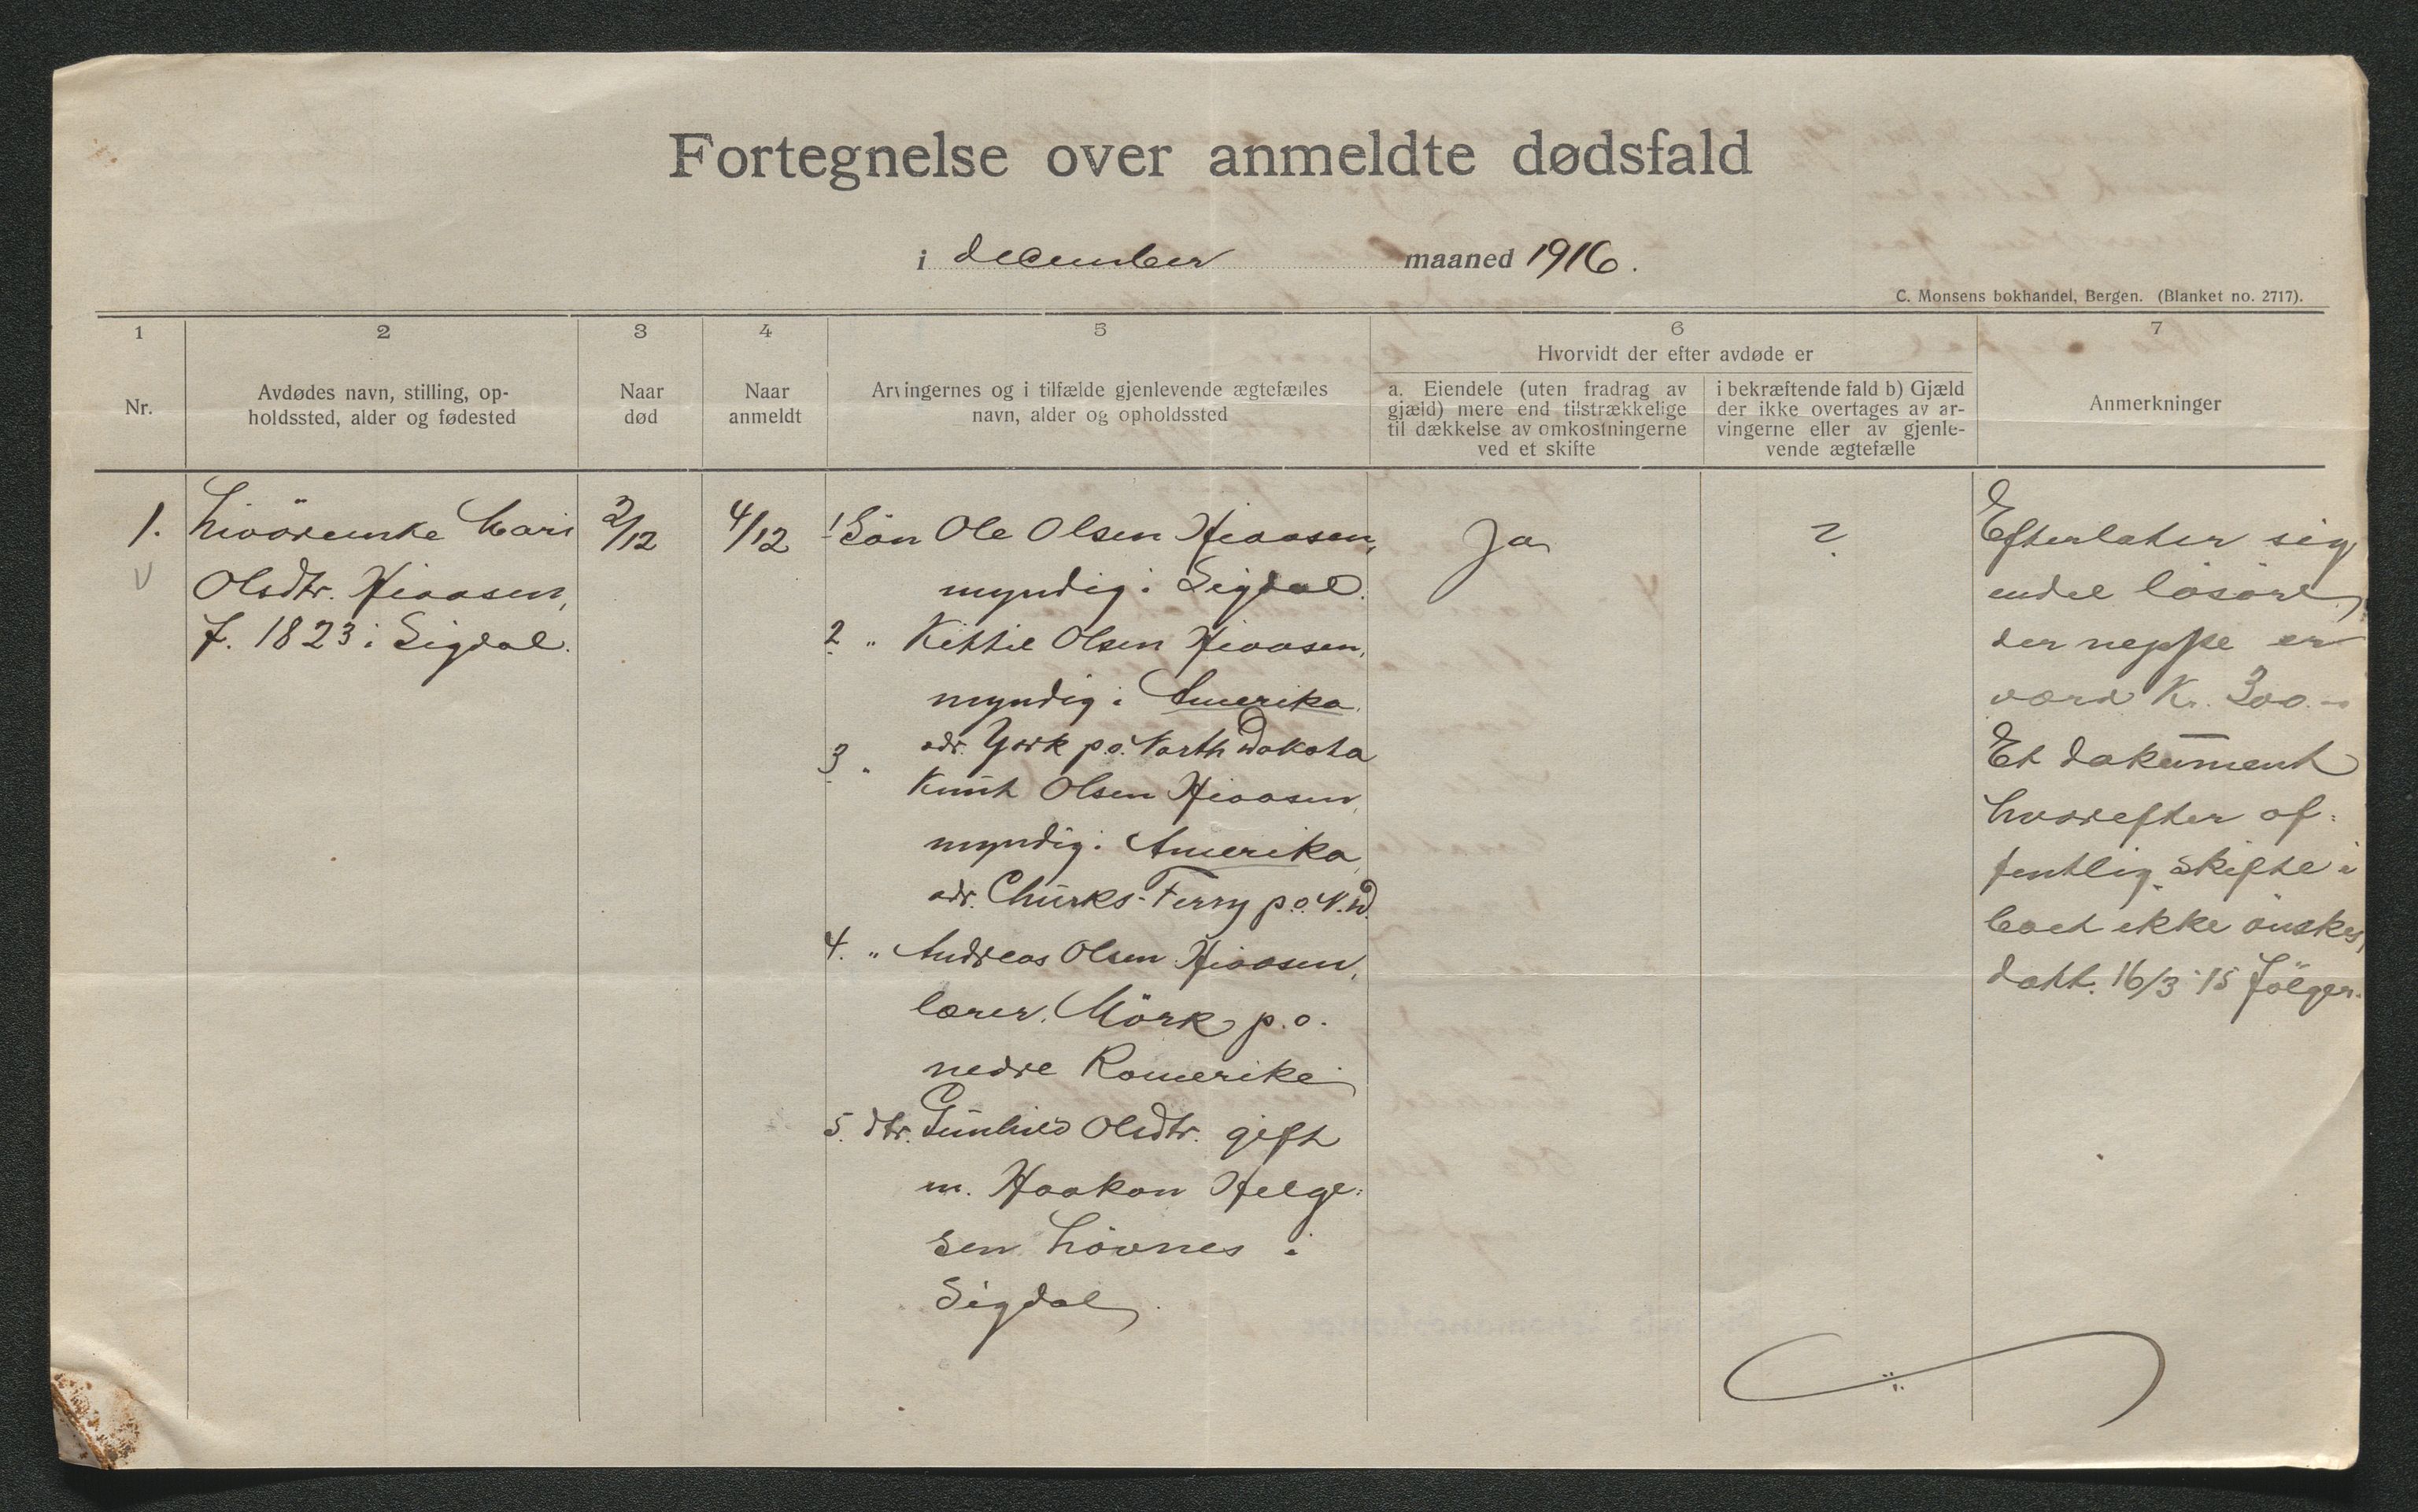 Fortegnelse over anmeldte dødsfald
i december maaned 1916.
C. Monsens bokhandel, Bergen. (Blanket no. 2717).
1
2
3
4
5
6
7
Nr.
Avdødes navn, stilling, op-
holdssted, alder og fødested
Naar
død
Naar
anmeldt
Arvingernes og i tilfælde gjenlevende ægtefælles
navn, alder og opholdssted
Hvorvidt der efter avdøde er
a. Eiendele (uten fradrag av
gjæld) mere end tilstrækkelige
til dækkelse av omkostningerne
ved et skifte
i bekræftende fald b) Gjæld
der ikke overtages av ar-
vingerne eller av gjenle-
vende ægtefælle
Anmerkninger
1.
Livörenke Mari
Olsdtr. Hiaasen,
f. 1823 i Sigdal.
2/12
4/12
1 Sön Ole Olsen Hiaasen,
myndig i Sigdal.
2 " Kittil Olsen Hiaasen,
myndig i Amerika.
adr. York p.o. North Dakota
3 "
Knut Olsen Hiaasen,
myndig i Amerika,
adr. Churks-Ferry p.o. N.D.
4. " Andreas Olsen Hiaasen,
lærer, Mörk p.o.
nedre Romerike
5. dtr. Gunhild Olsdtr. gift
m. Haakon Helge-
sen Lövnes i
Sigdal.
Ja
?
Efterlater sig
endel lösöre,
der neppe er
værd Kr. 300.-
Et dokument
hvorefter of-
fentlig skifte i
boet ikke önskes,
datt. 16/3 15 fölger.